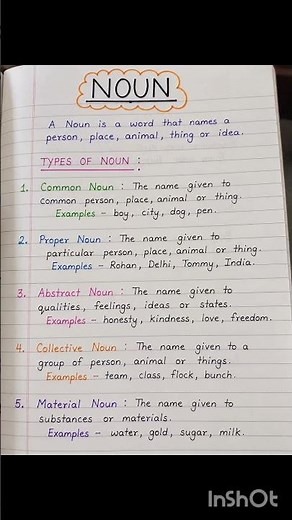 NOUN
A Noun is a word that names a
person, place, animal, thing or idea.
TYPES OF NOUN :
1. Common Noun : The name given to
common person, place, animal or thing.
Examples - boy, city, dog, pen.
2. Proper Noun : The name given to
particular person, place, animal or thing.
Examples - Rohan, Delhi, Tommy, India.
3. Abstract Noun : The name given to
qualities, feelings, ideas or states.
Examples - honesty, kindness, love, freedom.
4. Collective Noun : The name given to a
group of person, animal or things.
Examples - team, class, flock, bunch.
5. Material Noun : The name given to
substances or materials.
Examples - water, gold, sugar, milk.
InShOt